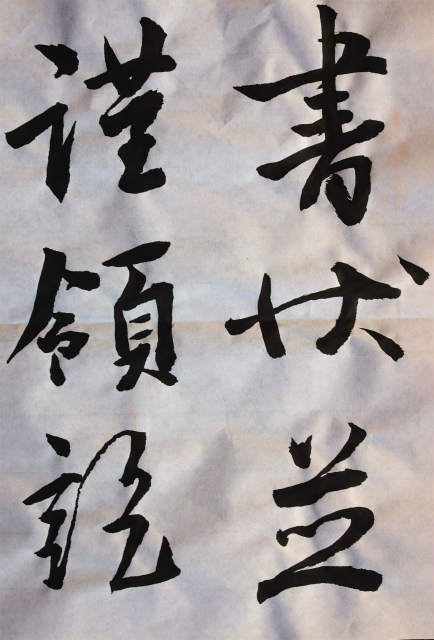 書状並
謹領訖